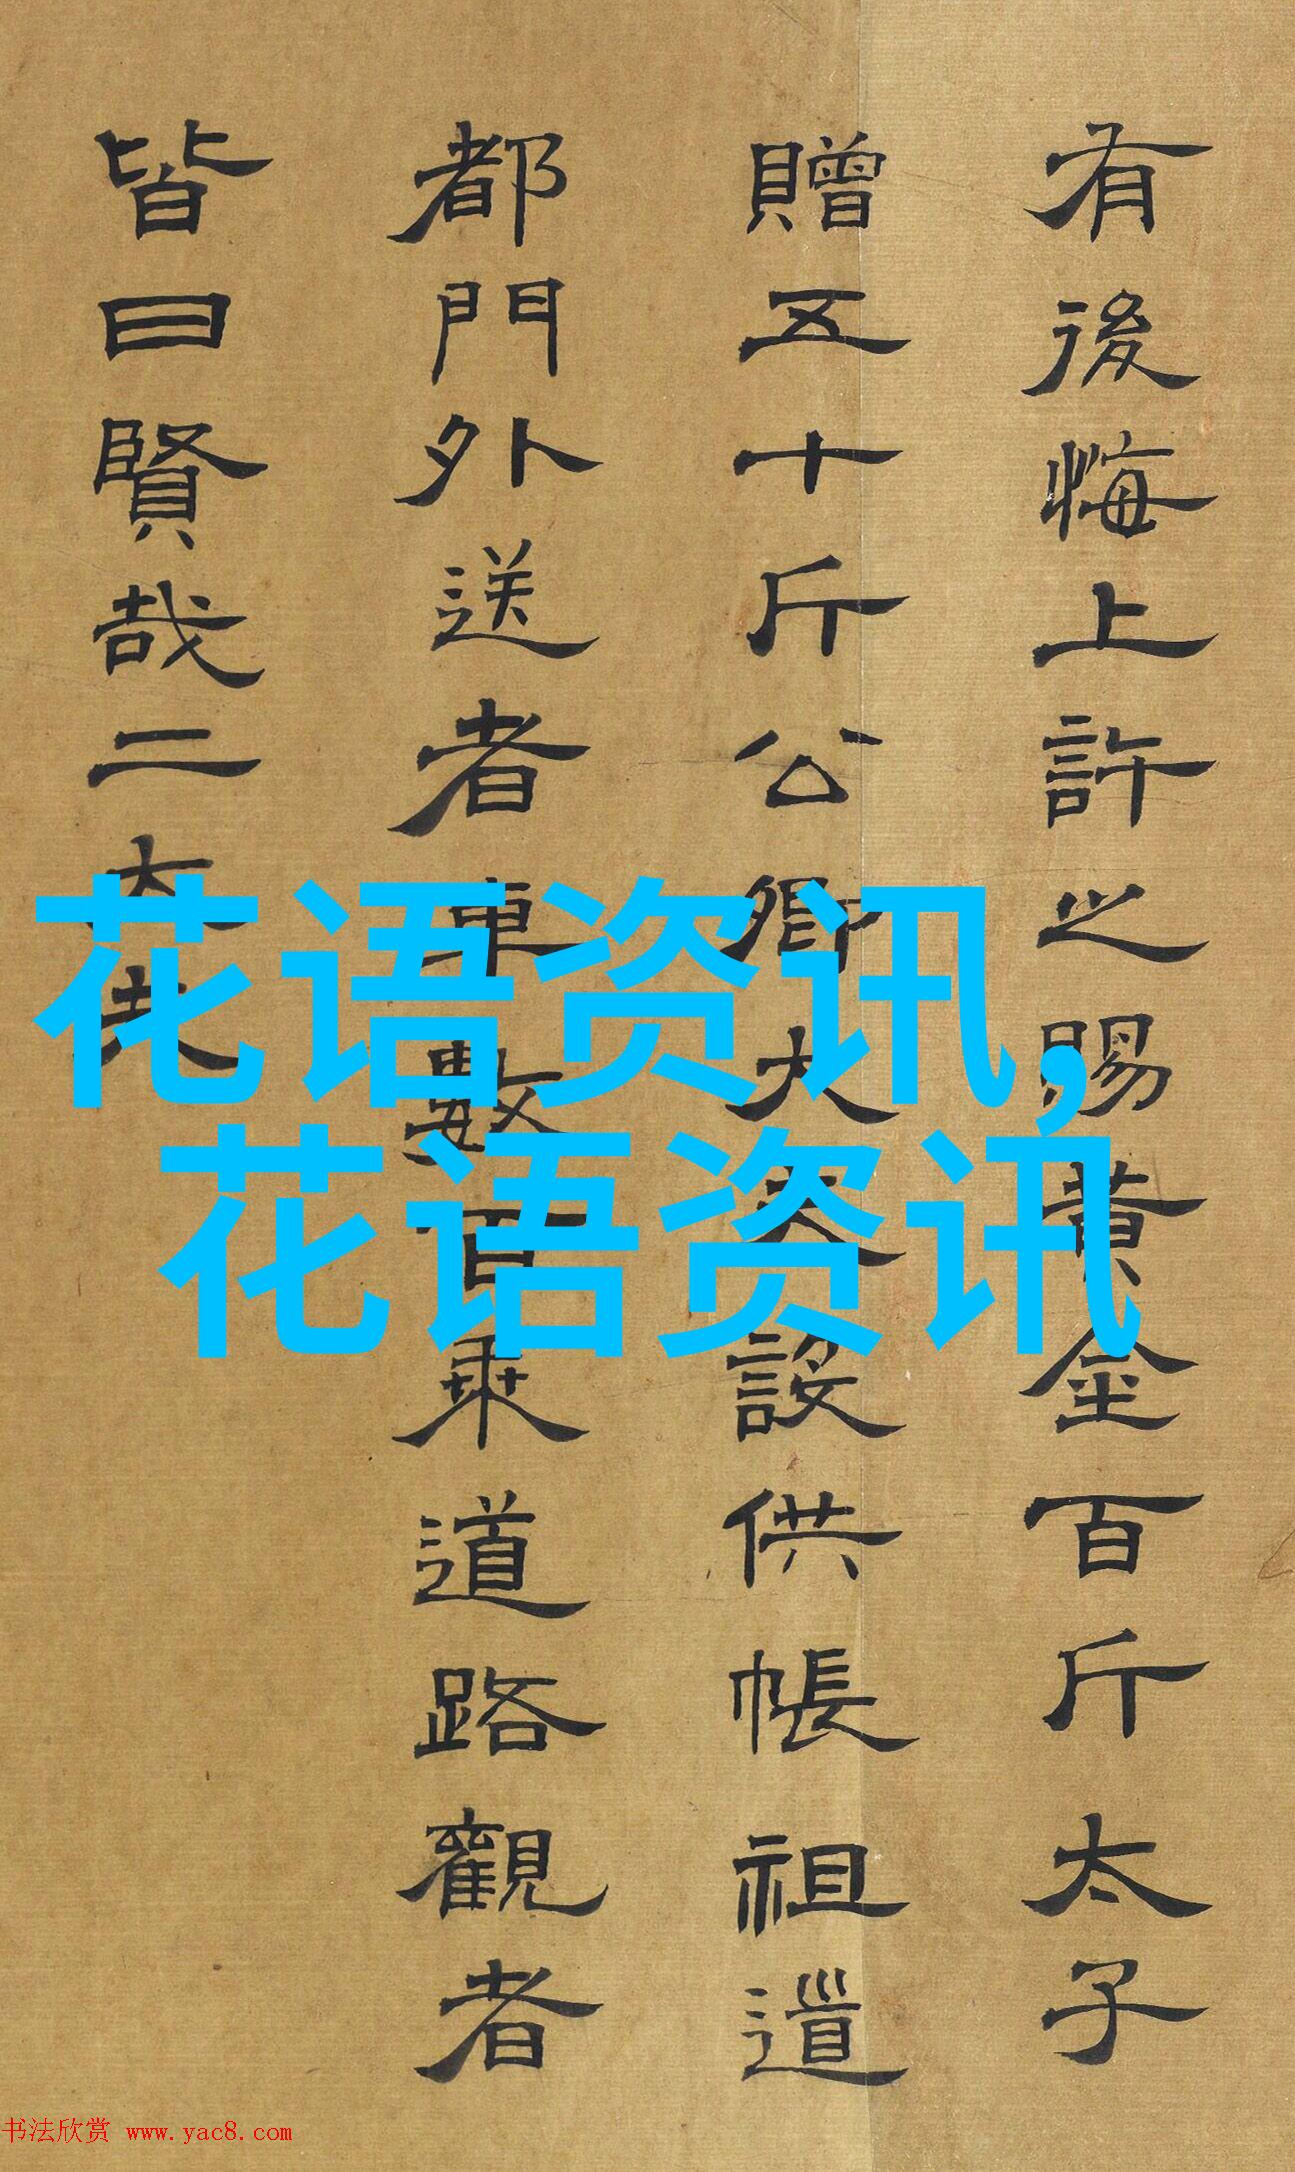 有後悔上許之賜黄金百斤太子
贈五十斤公卿大夫設供帳祖道
都門外送者車數百乘道路觀者
皆曰賢哉二大夫
花语资讯,
花语资讯
书法欣赏 www.yac8.com